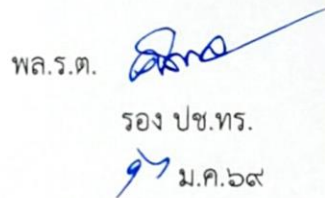 พล.ร.ต.
รอง ปช.ทร.
ม.ค.๖๙